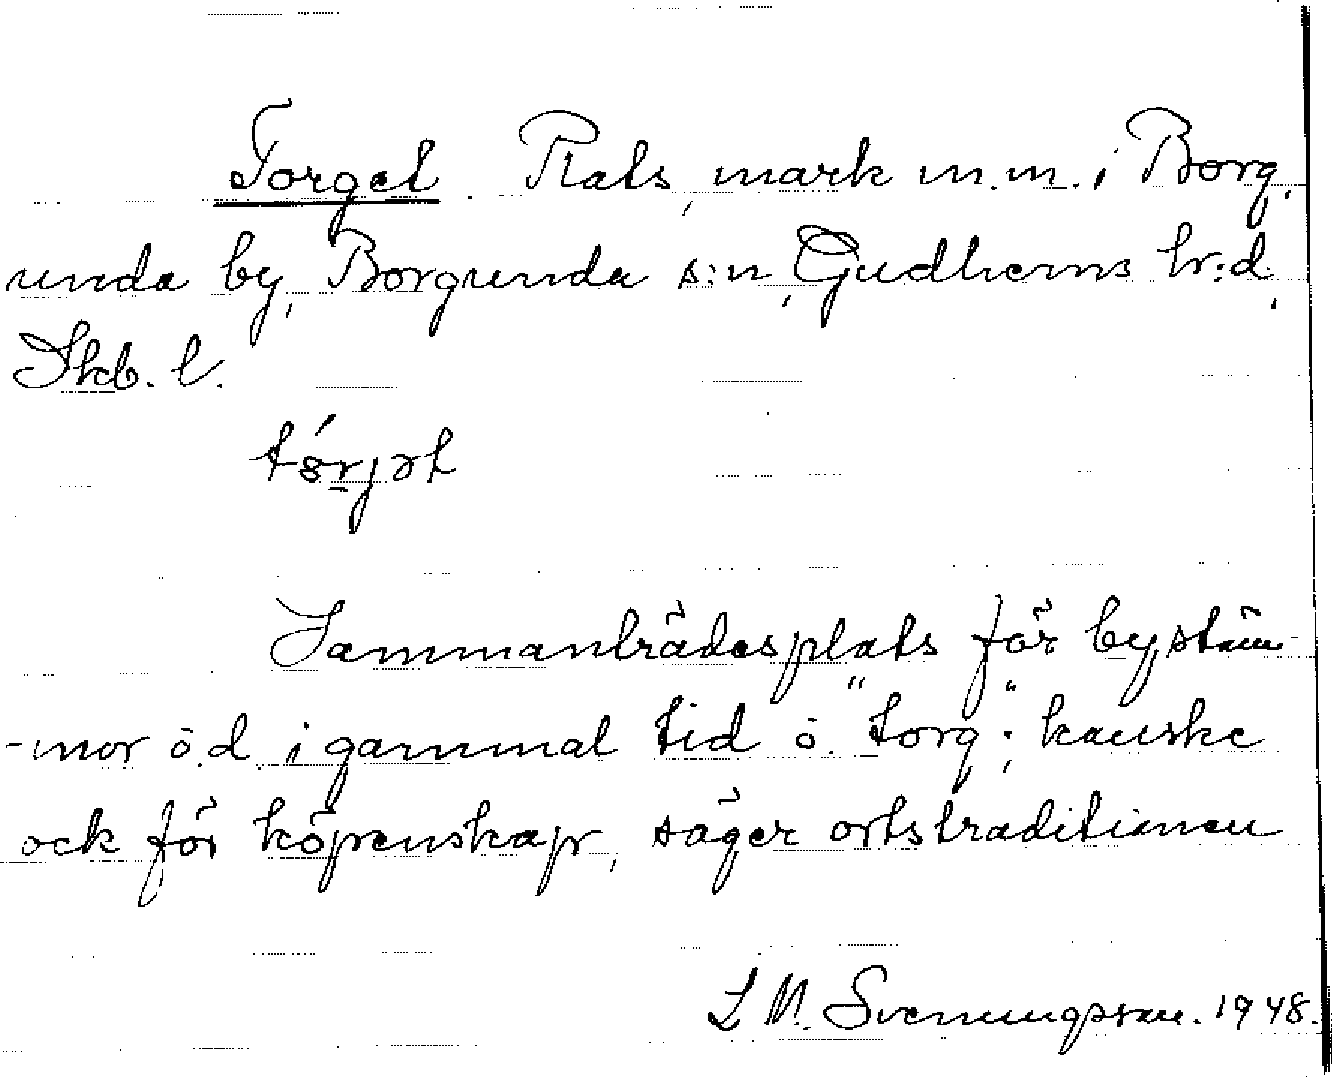 Torget. Plats, mark m.m. i Borg,
unda by, Borgunda s:n, Gudhems hr:d,
Skb. l.
Sammanträdesplats för bystäm-
-mor o.d. i gammal tid o. "torg"; kanske
ock för köpenskap, säger ortstraditionen
L M. Svenungsson. 1948.